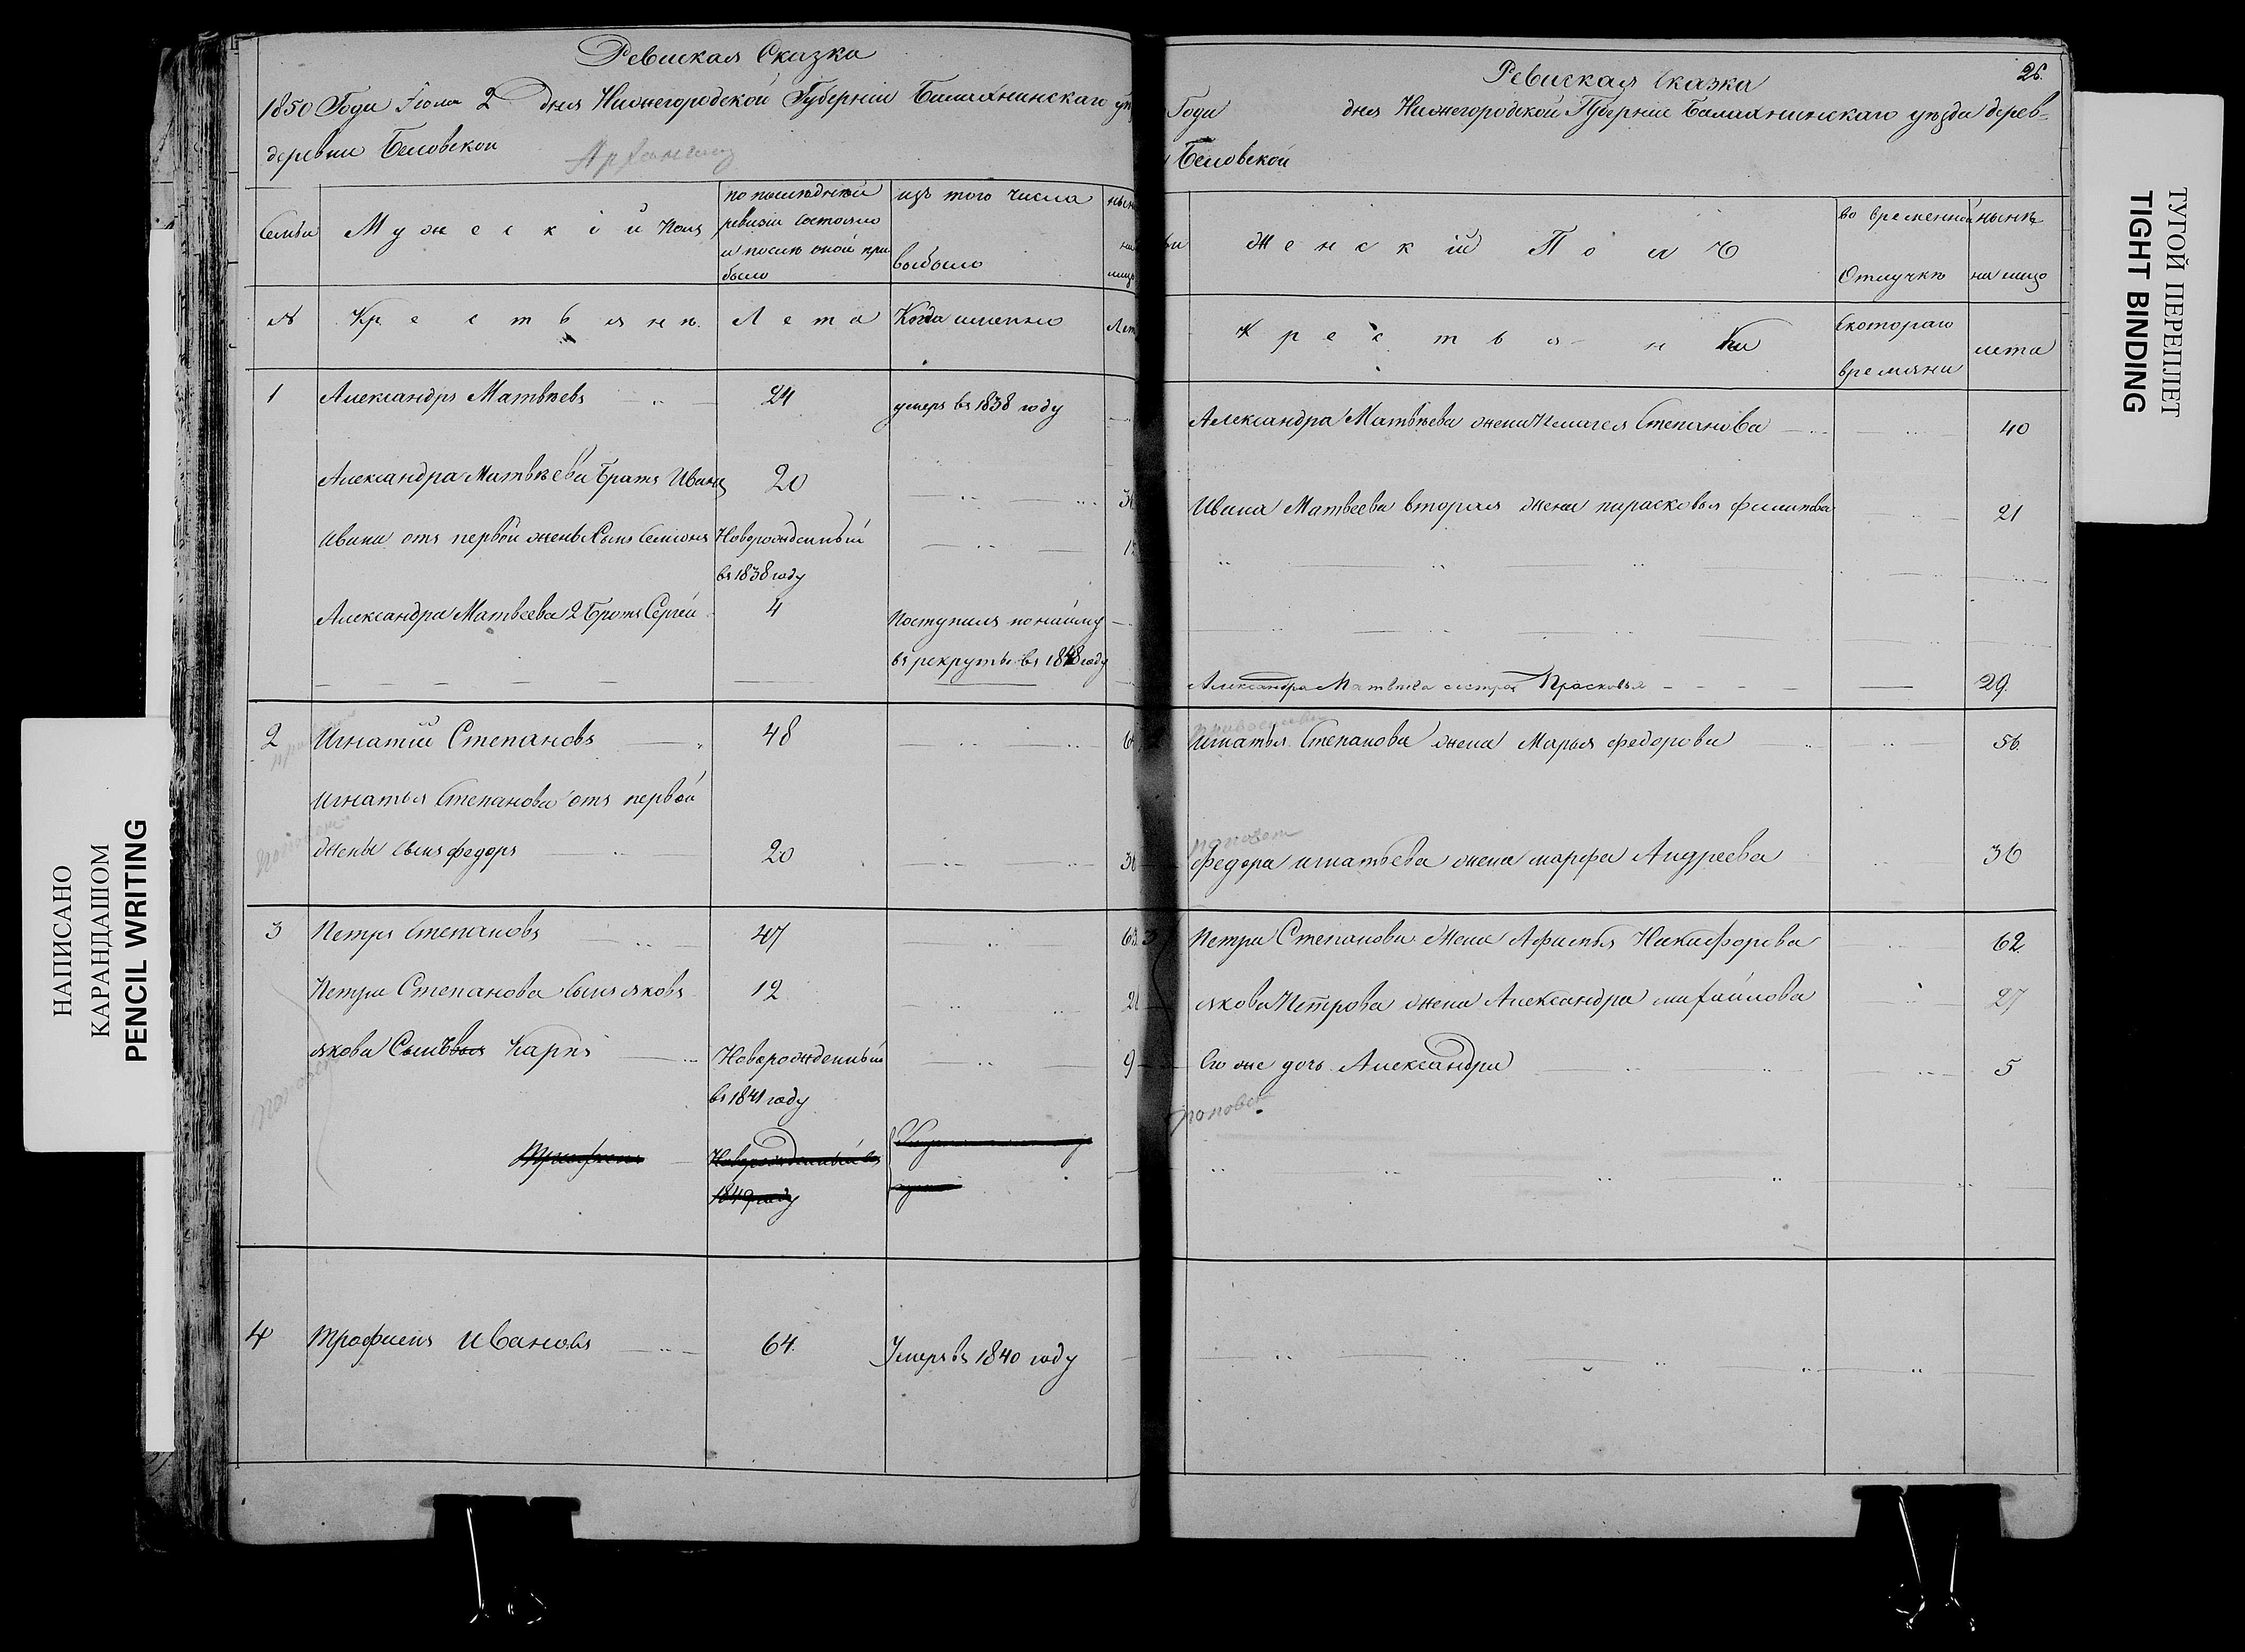 Ревиская Сказка
1850 Года Июля 2 дня Нижегородской Губернии Балахнинскаго уѣ
деревни Беловской
Семьи
Мужескій полъ
по последней
ревизіи состояло
и после оной при
было
изъ того числа
выбыло
нын
на
лицо
№
Крестьянѣ
Лета
Когда именно
Лет
1 Александръ Матвѣевъ 24 умеръ въ 1838 году
Александра Матвѣева братъ Иванъ 20
Ивана отъ первой жены сынъ Семіонъ Новорожденный
въ 1838 году
Александра Матвеева 2 братъ Сергей 4 Поступилъ по найму
въ рекруты въ 1848 году
2 Игнатій Степановъ 48
Игнатья Степанова отъ первой
жены сынъ федоръ 20
3 Петръ Степановъ 47
Петра Степанова сынъ яковъ 12
якова Сынъ Карпъ Новорожденный 9
въ 1841 году
Трофимъ Новорожденный въ
1849 году
4 Трофимъ Ивановъ 64. Умеръ въ 1840 году
26.
Ревиская Сказка
Года дня Нижегородской Губерніи Балахнинскаго уѣзда дерев=
Беловской
Женскій Полъ
во временной
Отлучке
ныне
на лицо
Крестьянки
С котораго
времяни
лета
Александра Матвѣева жена Пелагея Степанова 40
Ивана Матвеева вторая жена парасковья филипова 21
Александра Матвѣева сестра Прасковья 29.
Игнатья Степанова жена Марья федорова 56.
поповет
федора игнатьева жена марфа Андреева 36
3 Петра Степанова жена Афимья Никифорова 62.
якова Петрова жена Александра михайлова 27
Его же дочь Александра 5
поповст
ТУГОЙ ПЕРЕПЛЕТ
TIGHT BINDING
НАПИСАНО
КАРАНДАШОМ
PENCIL WRITING